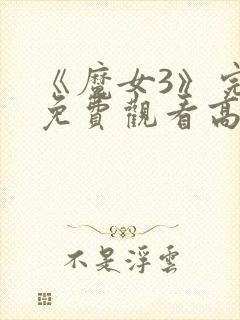 《魔女3》完
免費觀看高
不是浮雲